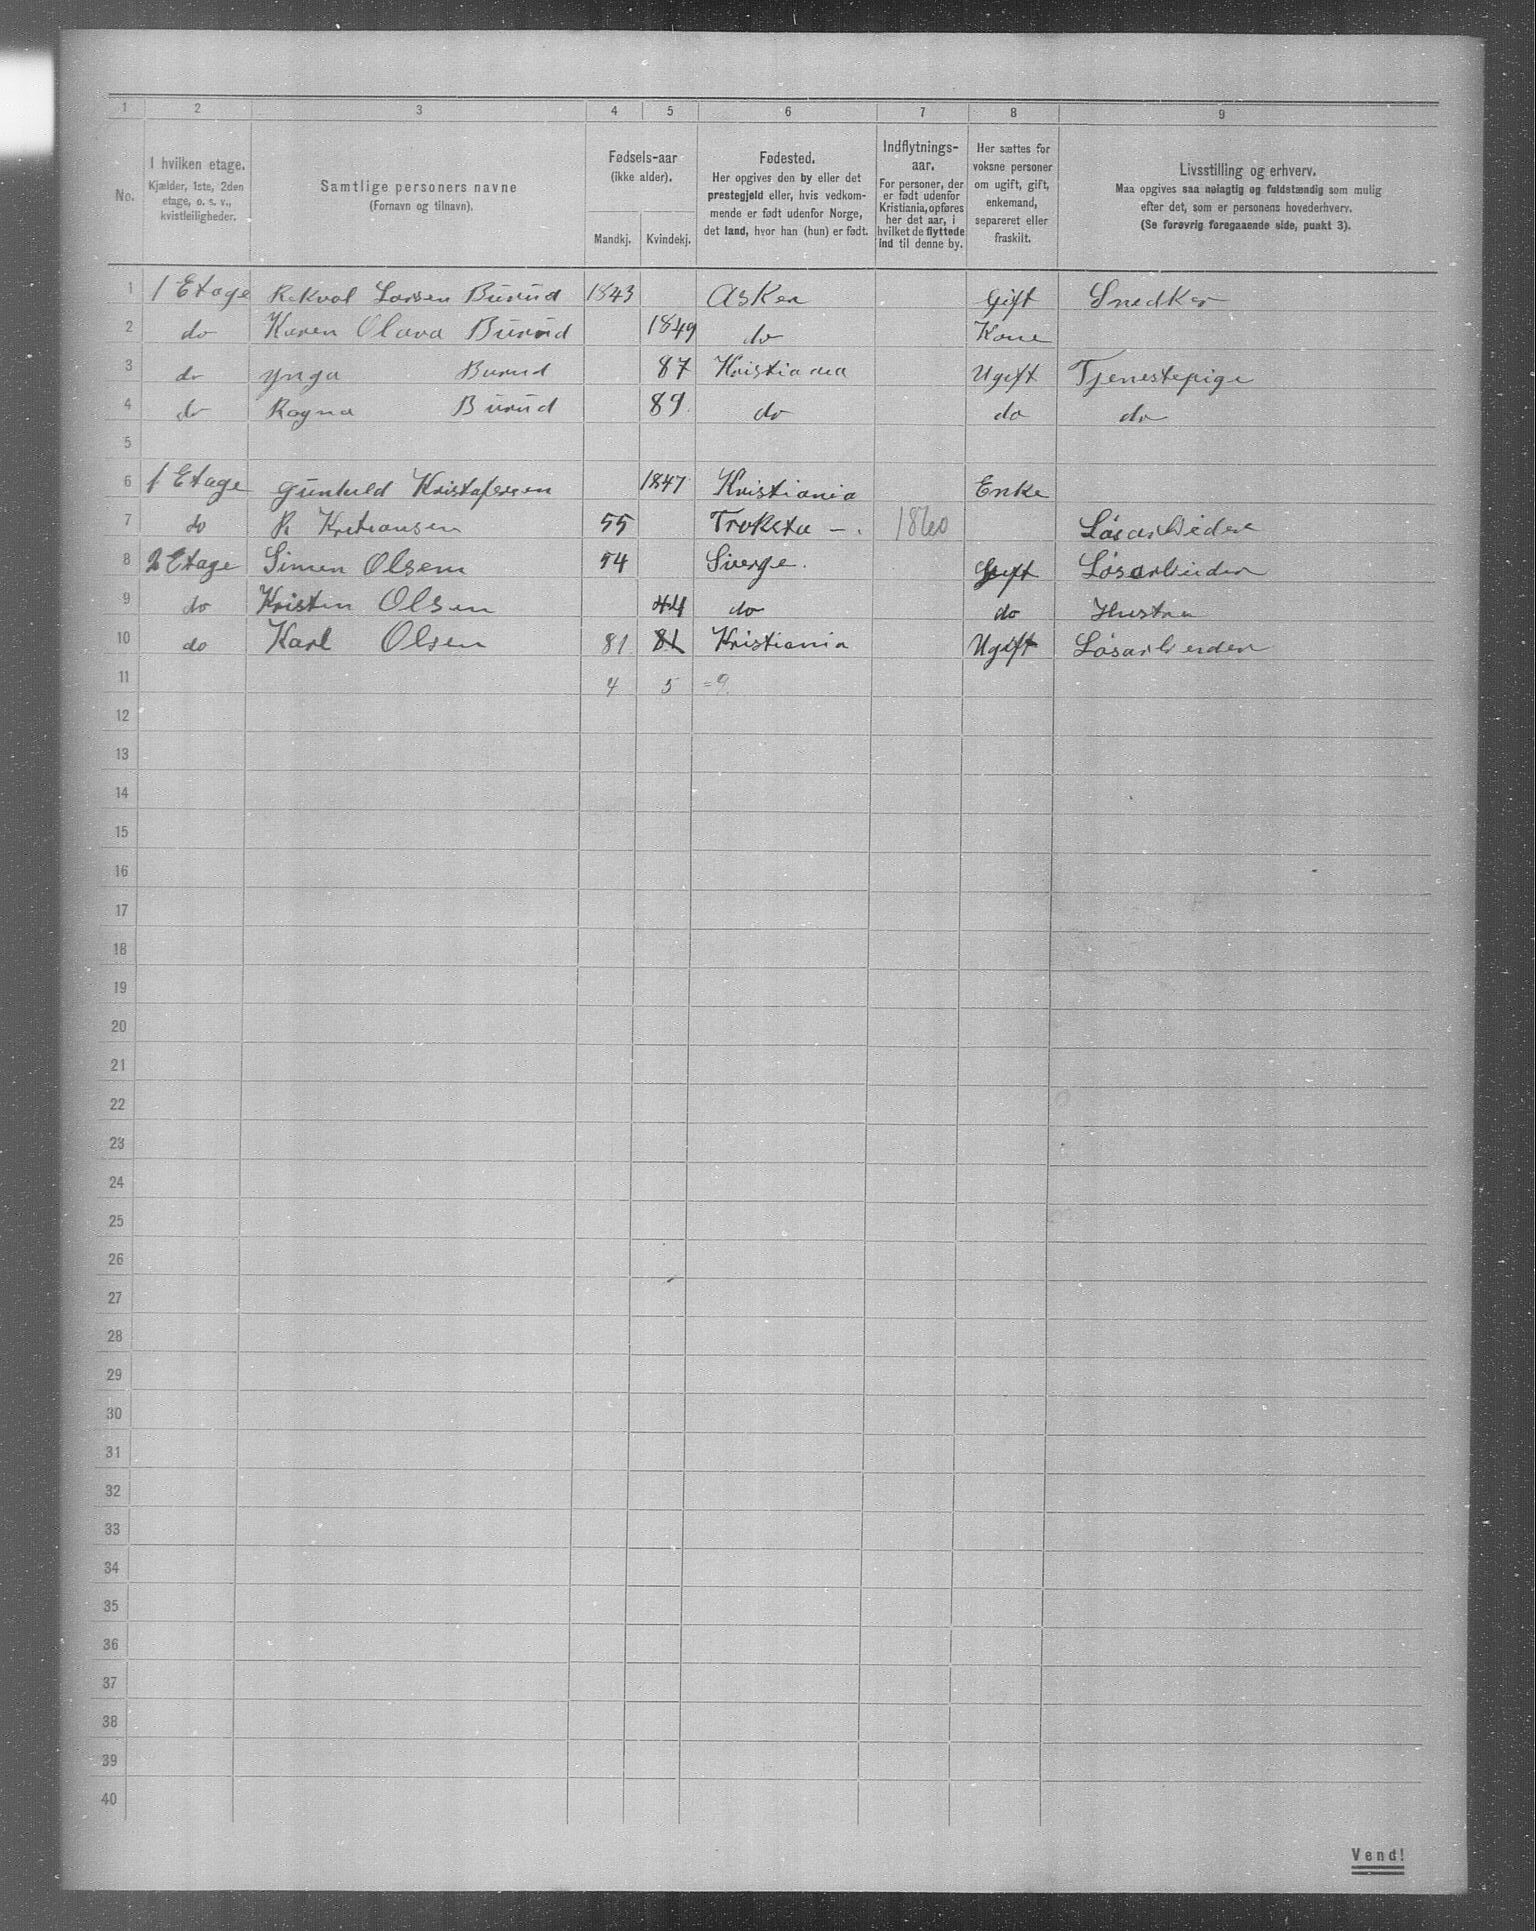 1 2 3 4 5 6 7 8 9
No.
I hvilken etage.
Kjælder, 1ste, 2den
etage, o. s. v.,
kvistleiligheder.
Samtlige personers navne
(Fornavn og tilnavn).
Fødsels-aar
(ikke alder).
Mandkj. Kvindekj.
Fødested.
Her opgives den by eller det
prestegjeld eller, hvis vedkom-
mende er født udenfor Norge,
det land, hvor han (hun) er født.
Indflytnings-
aar.
For personer, der
er født udenfor
Kristiania, opføres
her det aar, i
hvilket de flyttede
ind til denne by.
Her sættes for
voksne personer
om ugift, gift,
enkemand,
separeret eller
fraskilt.
Livsstilling og erhverv.
Maa opgives saa nøiagtig og fuldstændig som mulig
efter det, som er personens hovederhverv.
(Se forøvrig foregaaende side, punkt 3).
1 1 Etage Larsen Burud 1843 Asker Gift Snedker
2 do Karen Olava Burud 1849 do Kone
3 do Ynga Burud 87 Kristiania Ugift Tjenestepige
4 do Ragna Burud 89. do do do
5
6 1 Etage Gunhild Kristofersen 1847 Kristiania Enke
7 do 55 1860 Løsarbeider
8 2 Etage Simen Olsen 54 Sverge. Gift Løsarbeider
9 do Kristin Olsen 44 do do Hustru
10 do Karl Olsen 81 81 Kristiania Ugift Løsarbeider
11 4 5 =9.
12
13
14
15
16
17
18
19
20
21
22
23
24
25
26
27
28
29
30
31
32
33
34
35
36
37
38
39
40
Vend!